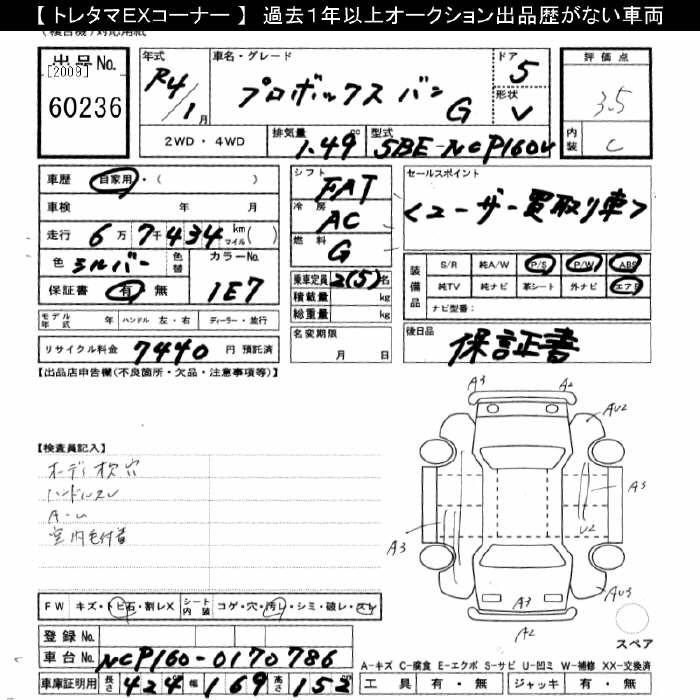 【トレタマEXコーナー】 過去1年以上オークション出品歴がない車両
(複合機)対応用紙
出品No.
[2009]
60236
年式 R4/1月
車名・グレード プロボックスバン G
ドア 5
形状 V
2WD・4WD
排気量 1.49
型式 5BE-NCP160V
評価点 3.5
内装 C
車歴 自家用・( )
車検 年 月
走行 6万7千434 km マイル( )
色 シルバー 色替
カラーNo. 1E7
保証書 有 無
モデル年式 年 ハンドル 左・右 ディーラー・並行
リサイクル料金 7440 円 預託済
シフト FAT
冷房 AC
燃料 G
乗車定員 2(5)名
積載量 kg
総重量 kg
名変期限 月 日
セールスポイント
<ユーザー買取り車>
装備品 S/R 純A/W P/S P/W ABS
純TV 純ナビ 革シート 外ナビ エアB
ナビ型番:
後日品 保証書
【出品店申告欄(不良箇所・欠品・注意事項等)】
【検査員記入】
オーディオ欠穴
ハンドルスレ
室内毛付着
A3 A2
AU2
A3
U2
A3
AU3
A3
A2
スペア
FW キズ・トビ石・割レX シート内装 コゲ・穴・汚レ・シミ・破レ・スレ
登録No.
車台No. NCP160-0170786
車庫証明用 長さ 424 幅 169 高さ 152
A-キズ C-腐食 E-エクボ S-サビ U-凹ミ W-補修 XX-交換済
工具 有・無 ジャッキ 有・無